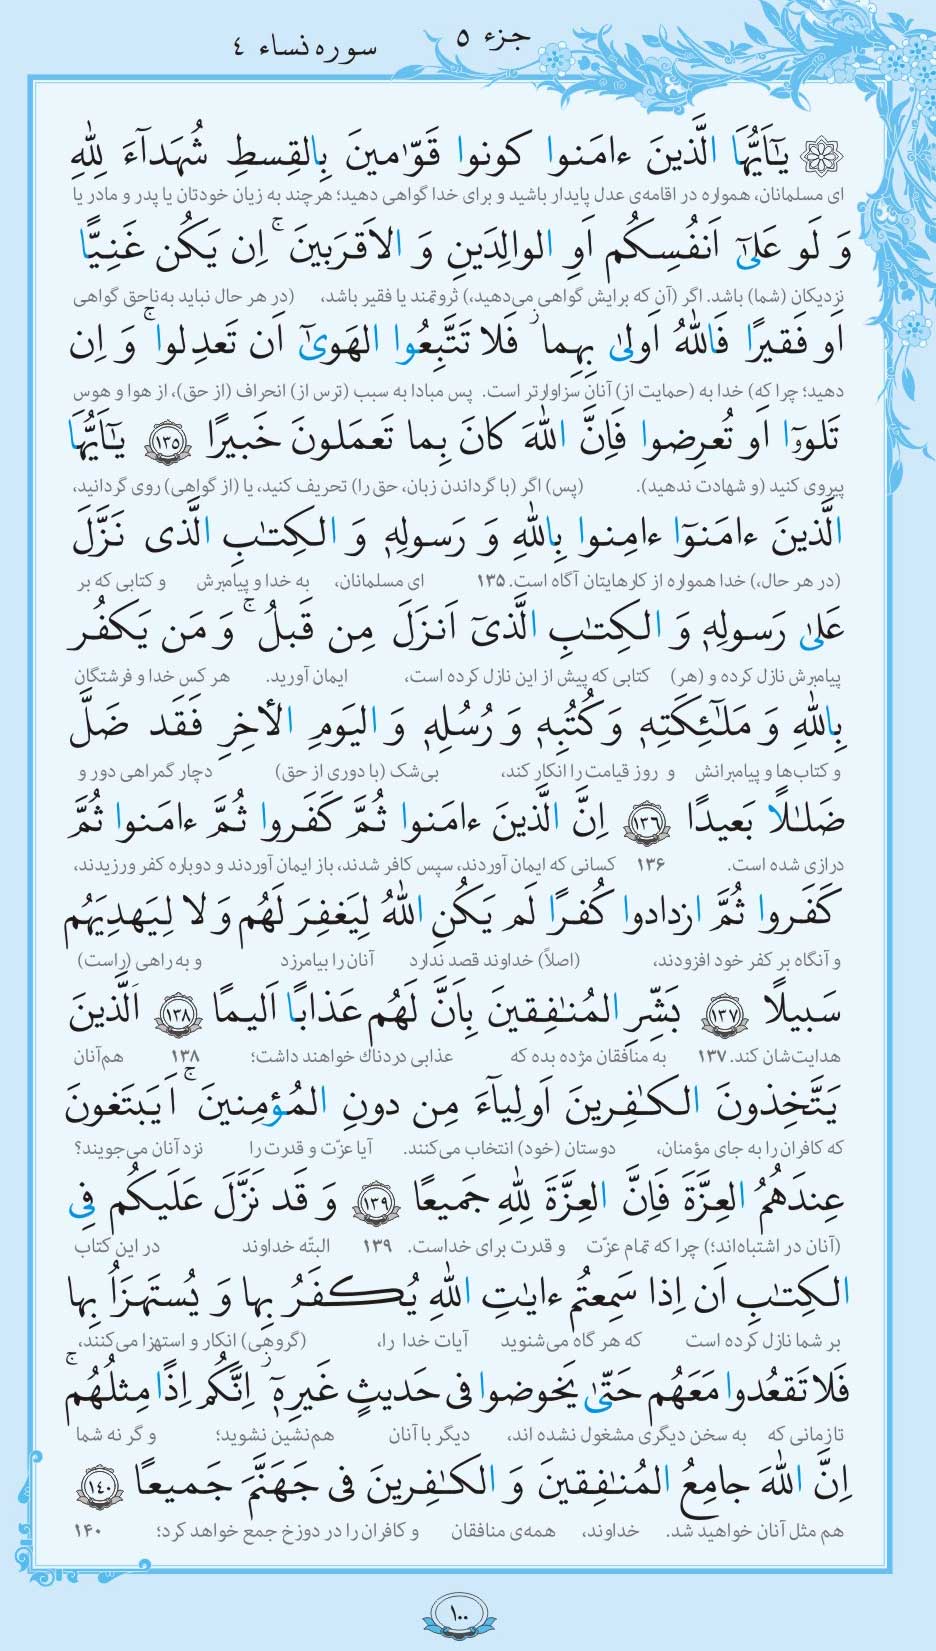 جزء ۵
سوره نساء ۴
يـٰٓاَيُّهَا الَّذينَ ءامَنوا كونوا قَوّٰمينَ بِالقِسطِ شُهَدآءَ لِلّٰهِ
ای مسلمانان، همواره در اقامه‌ی عدل پایدار باشید و برای خدا گواهی دهید؛ هرچند به زیان خودتان یا پدر و مادر یا
وَ لَو عَلىٰٓ اَنفُسِكُم اَوِ الوالِدَينِ وَ الاَقرَبينَ ۚ اِن يَكُن غَنِيًّا
نزدیکان (شما) باشد. اگر (آن که برایش گواهی می‌دهید،) ثروتمند یا فقیر باشد، (در هر حال نباید به‌ناحق گواهی
اَو فَقيرًا فَاللّٰهُ اَولىٰ بِهِما ۖ فَلا تَتَّبِعُوا الهَوىٰٓ اَن تَعدِلوا ۚ وَ اِن
دهید؛ چرا که) خدا به (حمایت از) آنان سزاوارتر است. پس مبادا به سبب (ترس از) انحراف (از حق)، از هوا و هوس
تَلوۥٓا اَو تُعرِضوا فَاِنَّ اللّٰهَ كانَ بِما تَعمَلونَ خَبيرًا ﴿۱۳۵﴾ يـٰٓاَيُّهَا
پیروی کنید (و شهادت ندهید). (پس) اگر (با گرداندن زبان، حق را) تحریف کنید، یا (از گواهی) روی گردانید،
الَّذينَ ءامَنوٓا ءامِنوا بِاللّٰهِ وَ رَسولِهٖ وَ الكِتـٰبِ الَّذى نَزَّلَ
(در هر حال،) خدا همواره از کارهایتان آگاه است. ۱۳۵ ای مسلمانان، به خدا و پیامبرش و کتابی که بر
عَلىٰ رَسولِهٖ وَ الكِتـٰبِ الَّذىٓ اَنزَلَ مِن قَبلُ ۚ وَ مَن يَكفُر
پیامبرش نازل کرده و (هر) کتابی که پیش از این نازل کرده است، ایمان آورید. هر کس خدا و فرشتگان
بِاللّٰهِ وَ مَلـٰٓئِكَتِهٖ وَ كُتُبِهٖ وَ رُسُلِهٖ وَ اليَومِ الأخِرِ فَقَد ضَلَّ
و کتاب‌ها و پیامبرانش و روز قیامت را انکار کند، بی‌شک (با دوری از حق) دچار گمراهی دور و
ضَلـٰلًا بَعيدًا ﴿۱۳۶﴾ اِنَّ الَّذينَ ءامَنوا ثُمَّ كَفَروا ثُمَّ ءامَنوا ثُمَّ
درازی شده است. ۱۳۶ کسانی که ایمان آوردند، سپس کافر شدند، باز ایمان آوردند و دوباره کفر ورزیدند،
كَفَروا ثُمَّ ازدادوا كُفرًا لَم يَكُنِ اللّٰهُ لِيَغفِرَ لَهُم وَ لا لِيَهدِيَهُم
و آنگاه بر کفر خود افزودند، (اصلاً) خداوند قصد ندارد آنان را بیامرزد و به راهی (راست)
سَبيلًا ﴿۱۳۷﴾ بَشِّرِ المُنـٰفِقينَ بِاَنَّ لَهُم عَذابًا اَليمًا ﴿۱۳۸﴾ اَلَّذينَ
هدایت‌شان کند. ۱۳۷ به منافقان مژده بده که عذابی دردناك خواهند داشت؛ ۱۳۸ هم‌آنان
يَتَّخِذونَ الكـٰفِرينَ اَولِيآءَ مِن دونِ المُؤمِنينَ ۚ اَيَبتَغونَ
که کافران را به جای مؤمنان، دوستان (خود) انتخاب می‌کنند. آیا عزّت و قدرت را نزد آنان می‌جویند؟
عِندَهُمُ العِزَّةَ فَاِنَّ العِزَّةَ لِلّٰهِ جَميعًا ﴿۱۳۹﴾ وَ قَد نَزَّلَ عَلَيكُم فِى
(آنان در اشتباه‌اند؛) چرا که تمام عزّت و قدرت برای خداست. ۱۳۹ البتّه خداوند در این کتاب
الكِتـٰبِ اَن اِذا سَمِعتُم ءايـٰتِ اللّٰهِ يُكفَرُ بِها وَ يُستَهزَاُ بِها
بر شما نازل کرده است که هر گاه می‌شنوید آیات خدا را، (گروهی) انکار و استهزا می‌کنند،
فَلا تَقعُدوا مَعَهُم حَتّىٰ يَخوضوا فى حَديثٍ غَيرِهٖٓ ۖ اِنَّكُم اِذًا مِثلُهُم ۚ
تا زمانی که به سخن دیگری مشغول نشده اند، دیگر با آنان هم‌نشین نشوید؛ و گر نه شما
اِنَّ اللّٰهَ جامِعُ المُنـٰفِقينَ وَ الكـٰفِرينَ فى جَهَنَّمَ جَميعًا ﴿۱۴۰﴾
هم مثل آنان خواهید شد. خداوند، همه‌ی منافقان و کافران را در دوزخ جمع خواهد کرد؛ ۱۴۰
۱۰۰